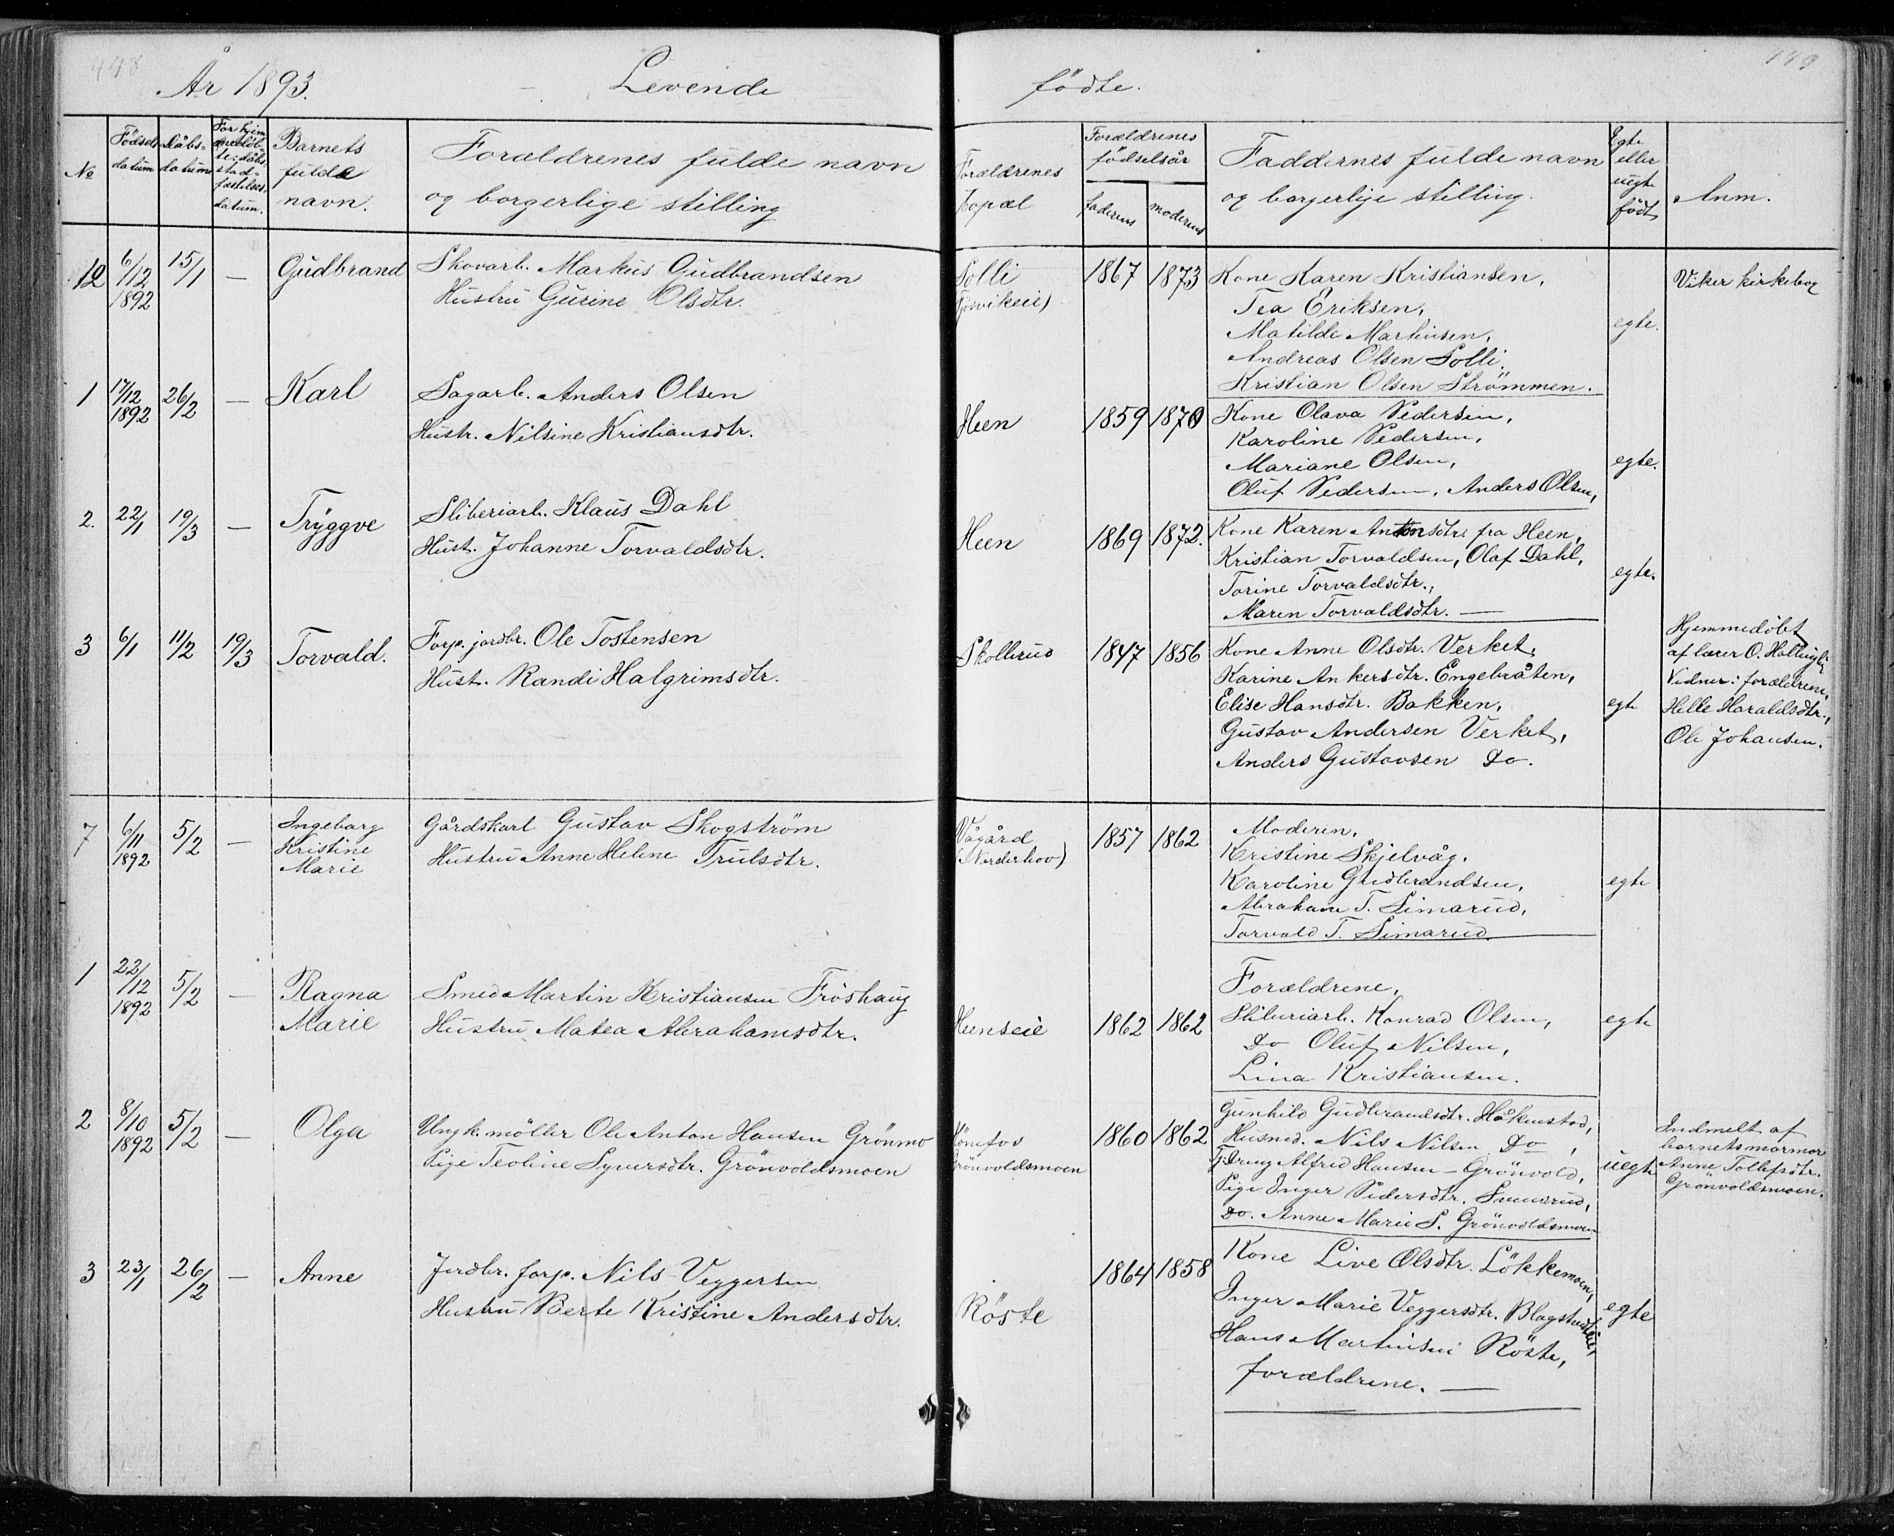 448
449
År 1893. Levende fødte.
No
Fødsels datum
Dåbs datum
Barnets fulde navn.
Forældrenes fulde navn og borgerlige stilling
Forældrenes bopæl
Forældrenes fødselsår
faderens
moderens
Faddernes fulde navn og borgerlige stilling.
Egte eller uegte født
Anm.
12 6/12 1892 15/1 — Gudbrand
Skovarb. Markus Gudbrandsen
Hustru Gurine Olsdtr.
Solli
1867 1873
Kone Karen Kristiansen,
Tea Eriksen,
Matilde Martinsen,
Andreas Olsen Solli,
Kristian Olsen Strømmen.
egte.
Viker kirkebog
1 17/12 1892 26/2 — Karl
Sagarb. Anders Olsen
Hustr. Nilsine Kristiansdtr.
Heen
1859 1870
Kone Olava Pedersen,
Karoline Pedersen,
Mariane Olsen,
Oluf Pedersen, Anders Olsen,
egte.
2. 22/1 19/3 — Tryggve
Sliberiarb. Klaus Dahl
Hust. Johanne Torvaldsdtr.
Heen
1869 1872.
Kone Karen Antonsdtr. fra Heen,
Kristian Torvaldsen, Olaf Dahl,
Torine Torvaldsdtr.,
Maren Torvaldsdtr. —
egte.
3 6/1 11/2 19/3 Torvald.
Forp. jordbr. Ole Tostensen
Hust. Randi Halgrimsdtr.
Skollerud
1847 1856
Kone Anne Olsdtr. Verket,
Karine Ankersdtr. Engebråten,
Elise Hansdtr. Bakken,
Gustav Andersen Verket,
Anders Gustavsen Do.
egte
Hjemmedøbt
af lærer O.
Vidner: forældrene,
Helle Haraldsdtr.,
Ole Johansen.
7 6/11 1892 5/2 — Ingeborg
Kristine
Marie
Gårdskarl Gustav Skogström
Hustru Anne Helene Trulsdtr.
Vågård
(Norderhov)
1857 1862
Moderen,
Kristine Skjelvåg,
Karoline Gudbrandsen,
Abraham T. Simarud,
Torvald T. Simarud.
egte
1 22/12 1892 5/2 — Ragna
Marie
Smed Martin Kristiansen Fröshaug
Hustru Matea Abrahamsdtr.
Heenseie
1862 1862
Forældrene,
Sliberiarb. Konrad Olsen,
Do Oluf Nilsen,
Lina Kristiansen.
egte
2 8/10 1892 5/2 — Olga
Ungk. möller Ole Anton Hansen Grönmo
Pige Teoline Syversdtr. Grönvoldsmoen
Hönefos
Grönvoldsmoen
1860 1862
Gunhild Gudbrandsdtr. Håkenstad,
Husmd. Nils Nilsen Do,
Tj.dreng Alfred Hansen – Grönvold,
Pige Inger Pedersdtr.
Do. Anne Marie S. Grönvoldsmoen
uegte
Indmelt af
barnets mormor
Anne Tollefsdtr.
Grönvoldsmoen.
3 23/1 26/2 — Anne
Jordbr. forp. Nils Veggersen
Hustru Berte Kristine Andersdtr.
Röste
1864 1858
Kone Live Olsdtr. Lökkemoen,
Inger Marie Veggersdtr.
Hans Martinsen Röste,
forældrene. —
egte